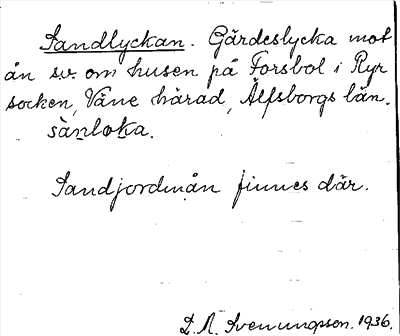 Sandlyckan. Gärdeslycka mot
ån sv. om husen på Forsbol i Ryr
socken, Väne härad, Älfsborgs län.
sàn̥loka.
Sandjordmån finnes där.
D. A. Svenungsson. 1936.